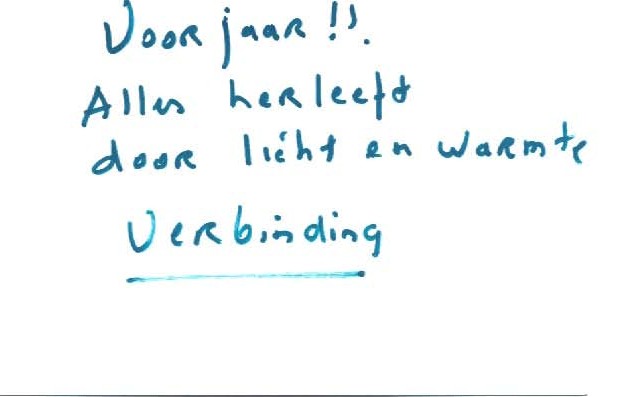 Voorjaar!!.
Alles herleeft
door licht en warmte
Verbinding